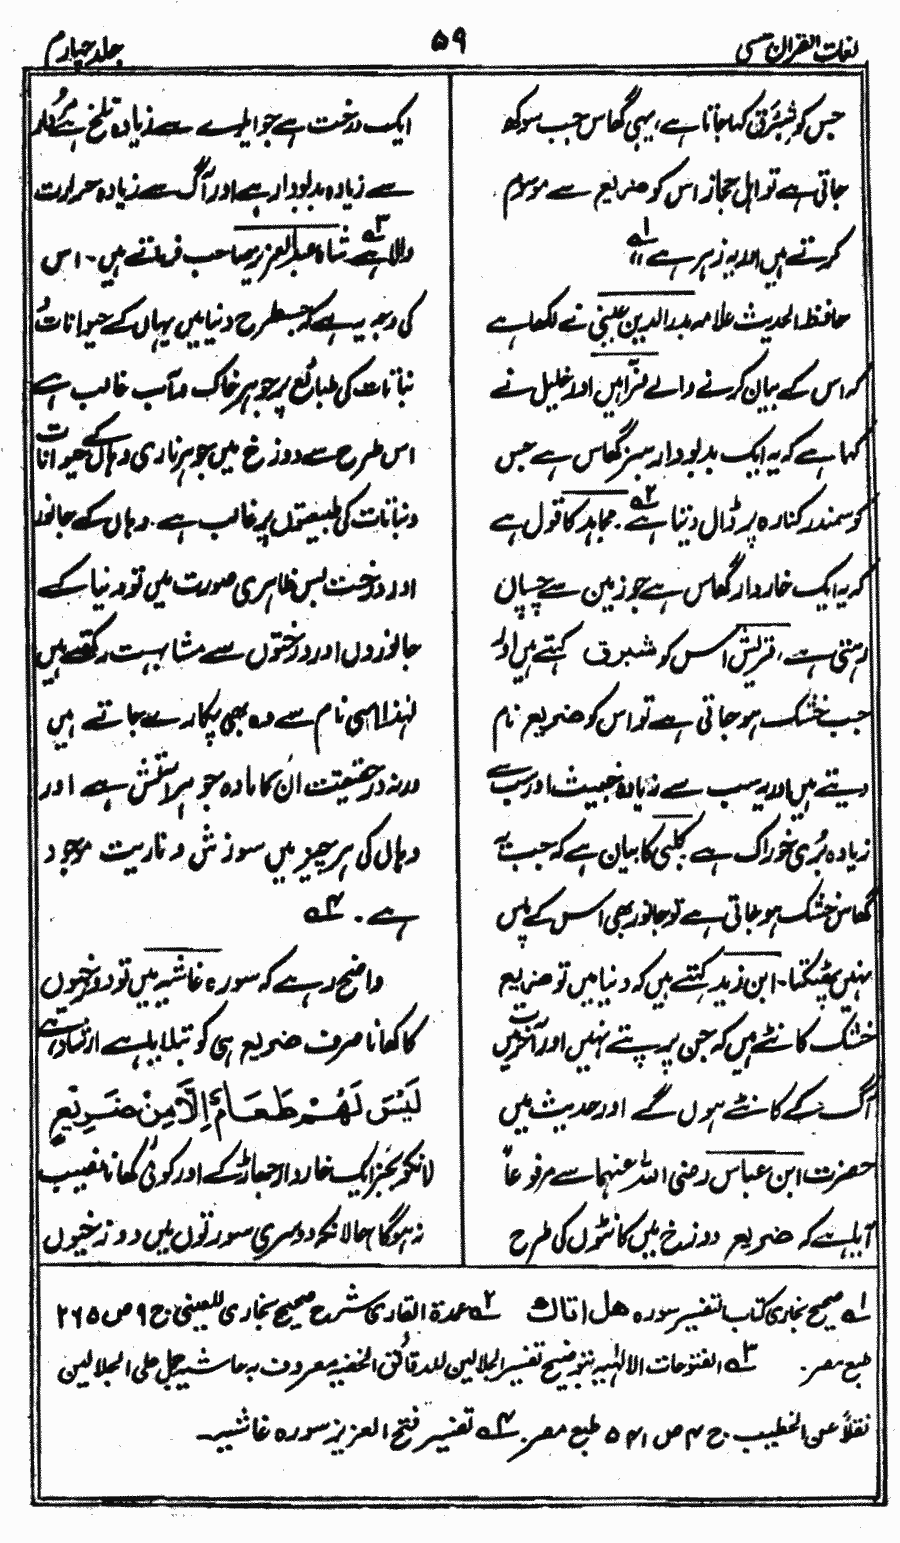 لغات القرآن
۵۹
جلد چہارم
جس کو شِبْرِق کہا جاتا ہے، یہی گھاس جب سوکھ
جاتی ہے تو اہل حجاز اس کو ضریع سے موسوم
کرتے ہیں اور یہ زہر ہے ۱؎
حافظ الحدیث علامہ بدر الدین عینی نے لکھا ہے
کہ اس کے بیان کرنے والے فرّا ہیں اور خلیل نے
کہا ہے کہ یہ ایک بدبودار سبز گھاس ہے جس
کو سمندر کنارہ پر ڈال دیتا ہے ۲؎. مجاہد کا قول ہے
کہ یہ ایک خاردار گھاس ہے جو زمین سے چسپاں
رہتی ہے، قریش اس کو شبرق کہتے ہیں اور
جب خشک ہو جاتی ہے تو اس کو ضریع نام
دیتے ہیں اور یہ سب سے زیادہ خبیث اور سب سے
زیادہ بُری خوراک ہے کلبی کا بیان ہے کہ جب یہ
گھاس خشک ہو جاتی ہے تو جانور بھی اس کے پاس
نہیں پھٹکتا۔ ابن زید کہتے ہیں کہ دنیا میں تو ضریع
خشک کانٹے ہیں کہ جن پر پتے نہیں اور آخرت میں
آگ کے کانٹے ہوں گے اور حدیث میں
حضرت ابن عباس رضی اللہ عنہما سے مرفوعاً
آیا ہے کہ ضریع دوزخ میں کانٹوں کی طرح
ایک درخت ہے جو ایلوے سے زیادہ تلخ ہے مُردار
سے زیادہ بدبودار ہے اور آگ سے زیادہ حرارت
والا ہے ۳؎ شاہ عبدالعزیز صاحب فرماتے ہیں۔ اس
کی وجہ یہ ہے کہ جسطرح دنیا میں یہاں کے حیوانات و
نباتات کی طبائع پر جوہر خاک و آب غالب ہے
اس طرح سے دوزخ میں جوہر ناری وہاں کے حیوانات
و نباتات کی طبیعتوں پر غالب ہے. وہاں کے جانور
اور درخت بس ظاہری صورت میں تو دنیا کے
جانوروں اور درختوں سے مشابہت رکھتے ہیں
لہٰذا اسی نام سے وہ بھی پکارے جاتے ہیں
ورنہ در حقیقت ان کا مادہ جو ہر آتش ہے اور
وہاں کی ہر چیز میں سوزش و ناریت موجود
ہے. ۴؎
واضح رہے کہ سورہ غاشیہ میں تو دوزخیوں
کا کھانا صرف ضریع ہی کو بتلایا ہے ارشاد ہے
لَيْسَ لَهُمْ طَعَامٌ إِلَّا مِنْ ضَرِيعٍ
حالانکہ بجز ایک خاردار جھاڑ کے اور کوئی کھانا نصیب
نہ ہوگا حالانکہ دوسری سورتوں میں دوزخیوں
۱؎ صحیح بخاری کتاب التفسیر سورہ ھل اتاک ۲؎ عمدة القاری شرح صحیح بخاری للعینی ج ۹ ص ۲۶۵
طبع مصر. ۳؎ الفتوحات الالٰہیہ بتوضیح تفسیر الجلالین للدقائق الخفیہ معروف بہ حاشیہ جمل علی الجلالین
نقلاً عن الخطیب. ج ۴ ص ۵۴۱ طبع مصر. ۴؎ تفسیر فتح العزیز سورہ غاشیہ۔